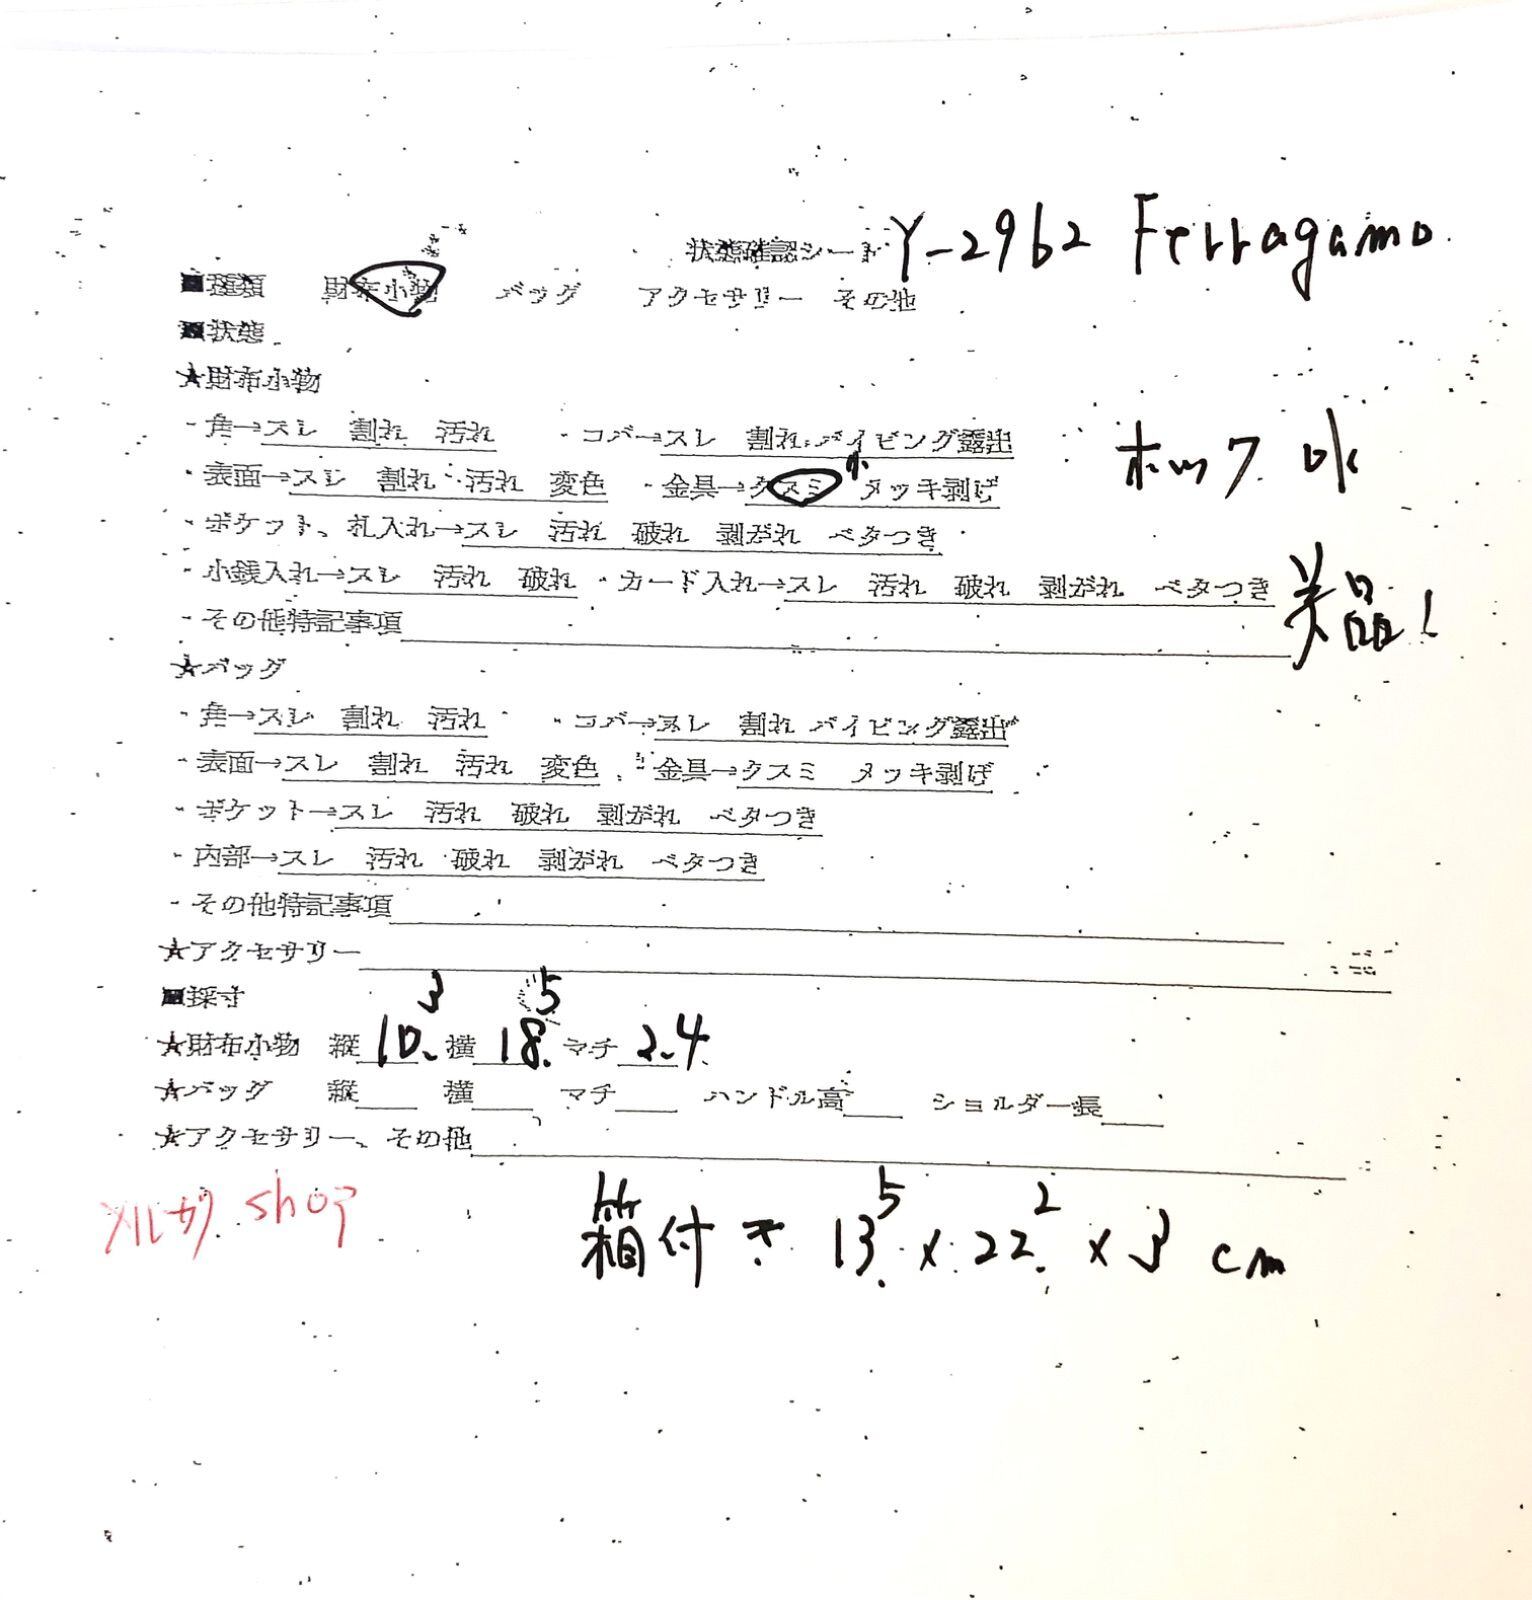 状態確認シート Y-2962 Ferragamo
■種類 財布小物 バッグ アクセサリー その他
■状態
★財布小物
・角→スレ 割れ 汚れ ・コバ→スレ 割れ パイピング露出 ホック ok
・表面→スレ 割れ 汚れ 変色 ・金具→クスミ 小 メッキ剥げ
・ポケット、札入れ→スレ 汚れ 破れ 剥がれ ベタつき
・小銭入れ→スレ 汚れ 破れ ・カード入れ→スレ 汚れ 破れ 剥がれ ベタつき 美品!
・その他特記事項
★バッグ
・角→スレ 割れ 汚れ ・コバ→スレ 割れ パイピング露出
・表面→スレ 割れ 汚れ 変色 ・金具→クスミ メッキ剥げ
・ポケット→スレ 汚れ 破れ 剥がれ ベタつき
・内部→スレ 汚れ 破れ 剥がれ ベタつき
・その他特記事項
★アクセサリー
■採寸
★財布小物 縦 10.3 横 18.5 マチ 2.4
★バッグ 縦 横 マチ ハンドル高 ショルダー長
★アクセサリー、その他
メルカリ shop 箱付 13.5 x 22.2 x 3 cm